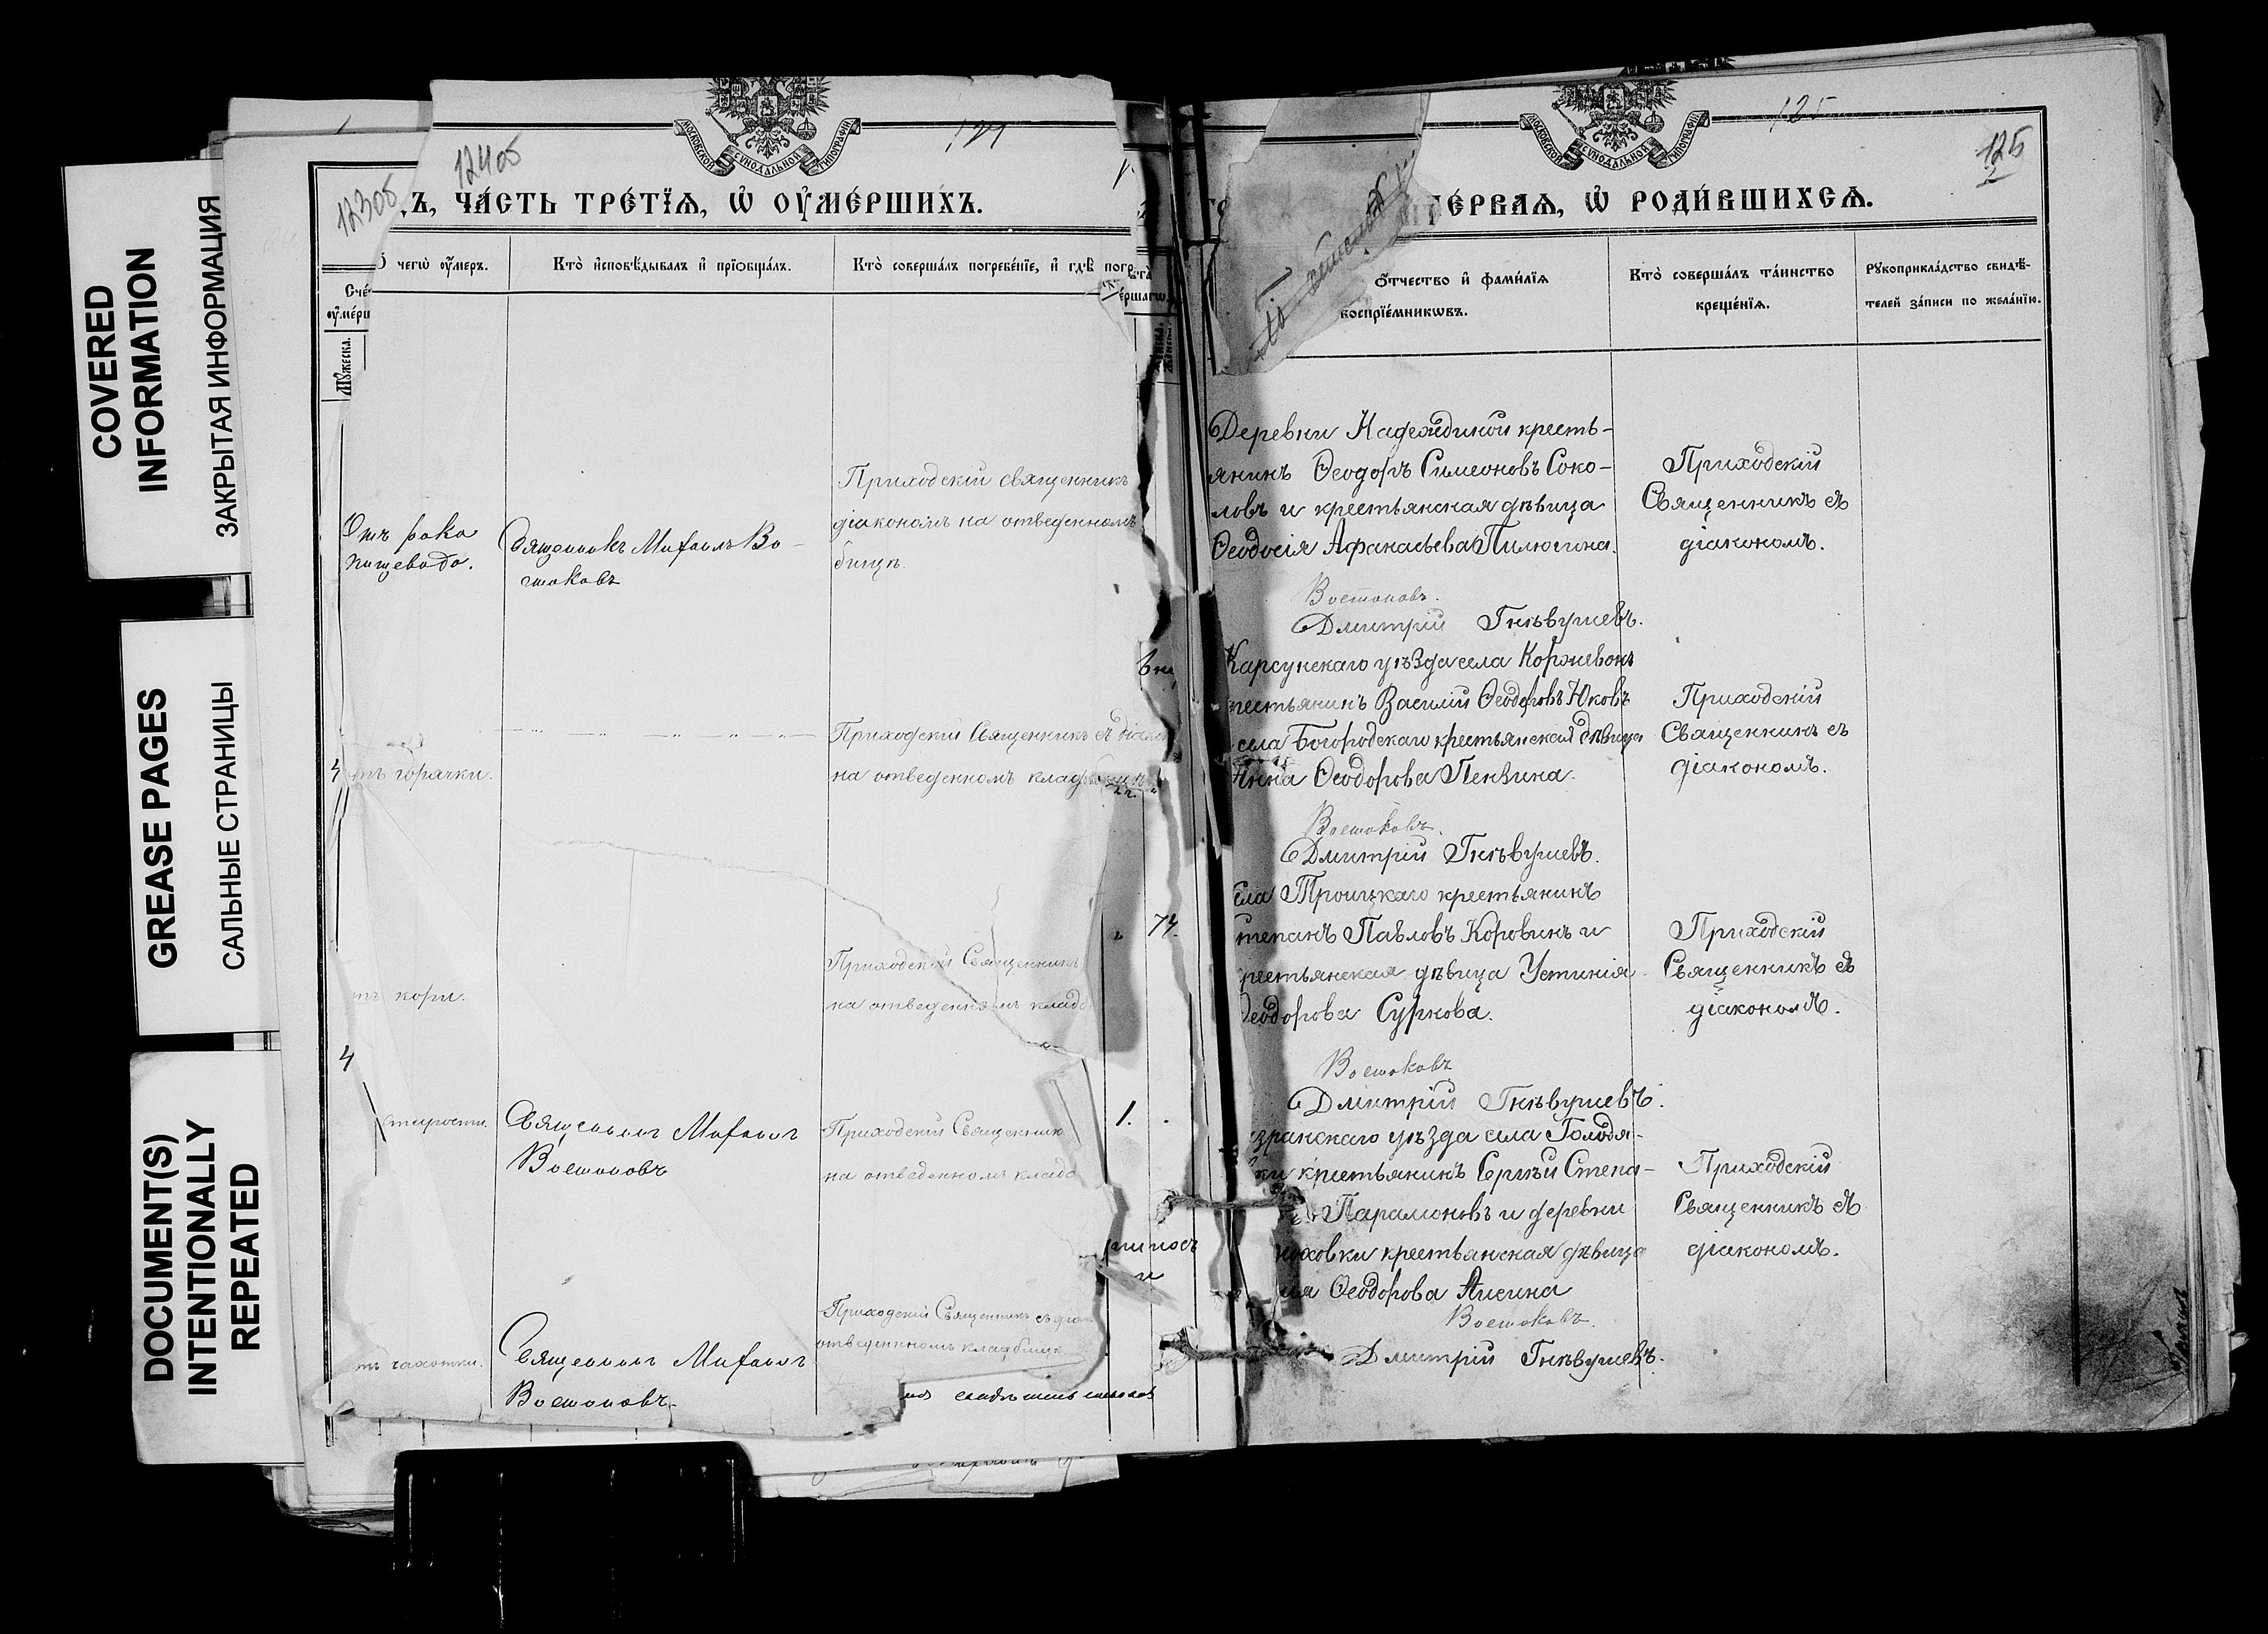 COVERED
INFORMATION
ЗАКРЫТАЯ ИНФОРМАЦИЯ
GREASE PAGES
САЛЬНЫЕ СТРАНИЦЫ
DOCUMENT(S)
INTENTIONALLY
REPEATED
МОСКОВСКОЙ СѴНОДАЛЬНОЙ ТИПОГРАФІИ
123об
124об
Ъ, ЧА́СТЬ ТРЕ́ТЇѦ, Ѡ҆ ОУ҆МЕ́РШИХЪ.
чегѡ̀ оу҆́меръ.
Кто̀ и҆сповѣ́дывалъ и҆ прїѡбща́лъ.
Кто̀ соверша́лъ погребе́нїе, и҆ гдѣ̀ погр
Мꙋ́жеска.
Отъ рака
пищевода.
Священникъ Михаилъ Во-
стоковъ
Приходскій священникъ
діакономъ на отведенномъ
бищѣ.
тъ горячки.
Приходскій Священникъ съ діакон
на отведенномъ клад
74.
тъ кори.
Приходскій Священникъ
на отведенномъ кладб
старости.
Священникъ Михаилъ
Востоковъ
Приходскій Священник
на отведенномъ кладб
1.
тъ чахотки.
Священникъ Михаилъ
Востоковъ.
Приходскій Священникъ съ діак
отведенномъ кладбищѣ.
МОСКОВСКОЙ СѴНОДАЛЬНОЙ ТИПОГРАФІИ
125
125
2
ПЕ́РВАѦ, Ѡ҆ РОДИ́ВШИХСѦ.
ѻ҆́тчество и҆ фами́лїѧ
воспрїе́мникѡвъ.
Кто̀ соверша́лъ та́инство
креще́нїѧ.
Рꙋкоприкла́дство свидѣ́-
телей за́писи по жела́нїю.
Деревни Надеждиной кресть-
янинъ Ѳеодоръ Симеоновъ Соко-
ловъ и крестьянская дѣвица
Ѳеодосія Афанасьева Пилюгина.
Приходскій
Священникъ съ
діакономъ.
Востоковъ.
Дмитрій Гнѣвушевъ.
Карсунскаго уѣзда села Коржевокъ
рестьянинъ Василій Ѳеодоровъ Юковъ
села Богородскаго крестьянская дѣвица
Анна Ѳеодорова Пензина.
Приходскій
Священникъ съ
діакономъ.
Востоковъ.
Дмитрій Гнѣвушевъ.
ела Троицкаго крестьянинъ
тепанъ Павловъ Коровинъ и
рестьянская дѣвица Устинія
Ѳеодорова Суркова.
Приходскій
Священникъ съ
діакономъ.
Востоковъ
Дмитрій Гнѣвушевъ.
зранскаго уѣзда села Голодя-
ки крестьянинъ Сергѣй Степа-
въ Парамоновъ и деревни
ховки крестьянская дѣвица
ія Ѳеодорова Ансина
Приходскій
Священникъ съ
діакономъ.
Востоковъ.
Дмитрій Гнѣвушевъ.